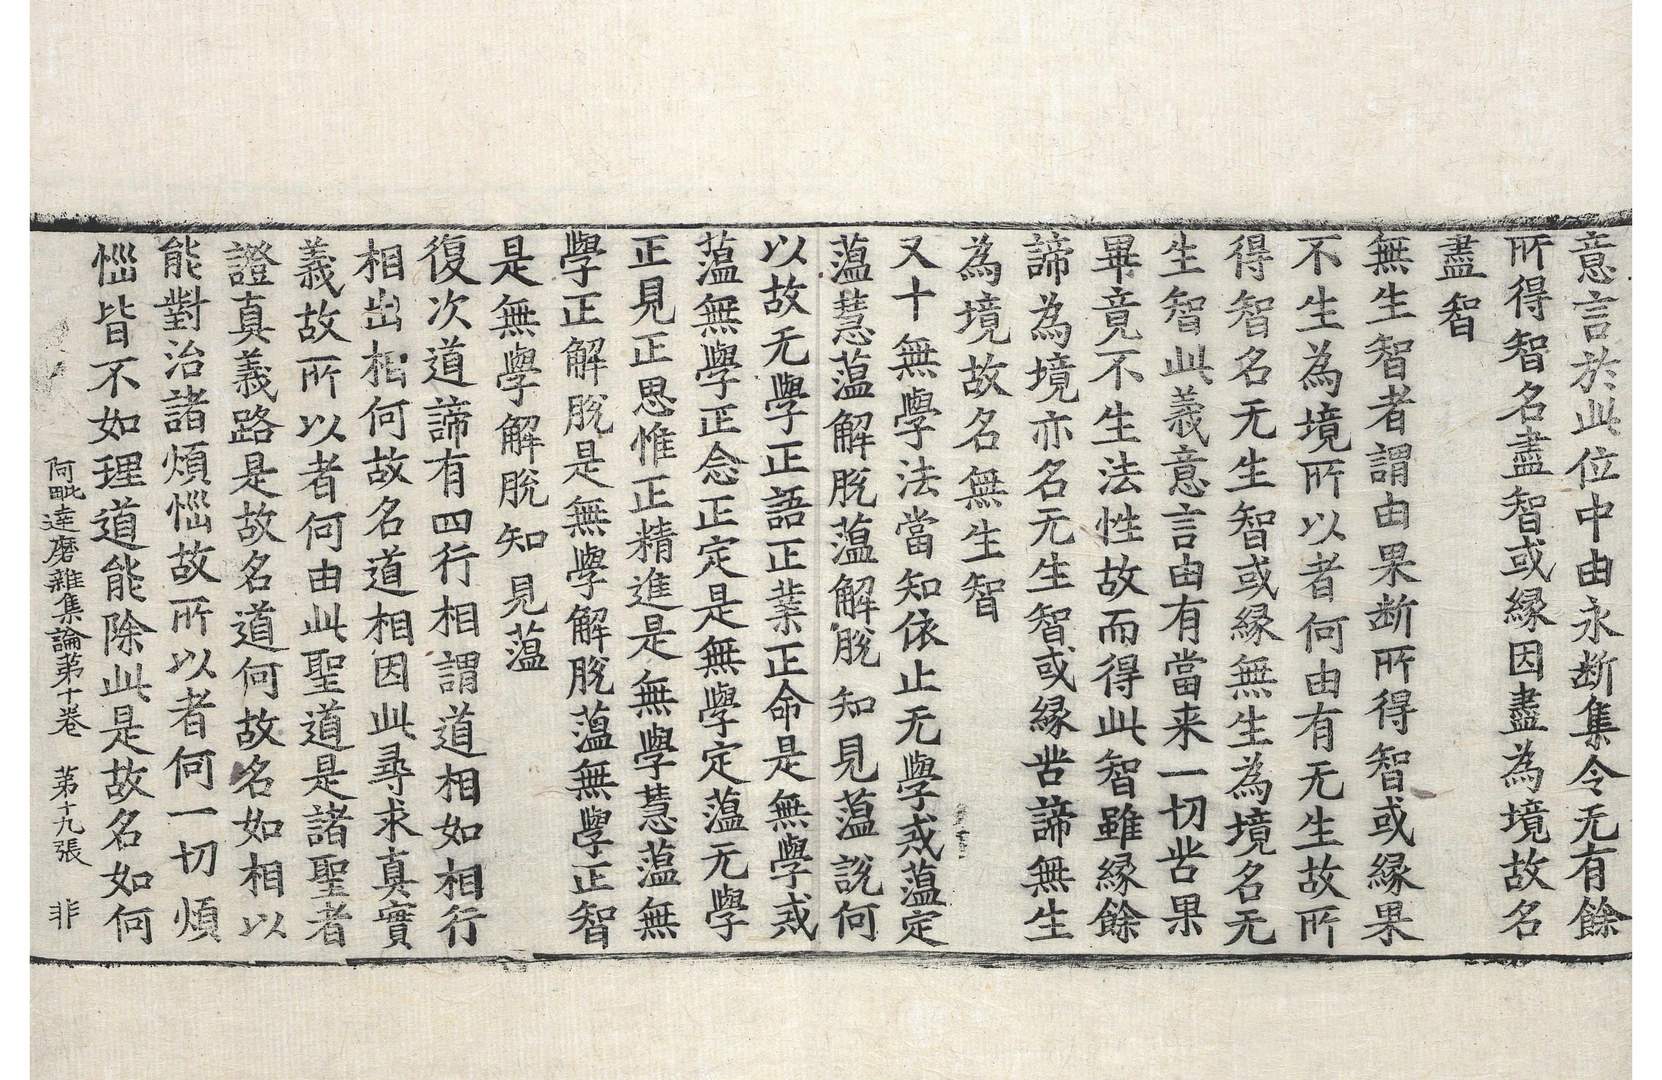 意言於此位中由永断集令无有餘
所得智名盡智或緣因盡為境故名
盡智
無生智者謂由果断所得智或緣果
不生為境所以者何由有无生故所
得智名无生智或緣無生為境名无
生智此義意言由有當来一切苦果
畢竟不生法性故而得此智雖緣餘
諦為境亦名无生智或緣苦諦無生
為境故名無生智
又十無學法當知依止无學戒蕰定
蕰慧蕰解脫蕰解脫知見蕰說何
以故无學正語正業正命是無學戒
蕰無學正念正定是無學定蕰无學
正見正思惟正精進是無學慧蕰無
學正解脫是無學解脫蕰無學正智
是無學解脫知見蕰
復次道諦有四行相謂道相如相行
相出相何故名道相因此尋求真實
義故所以者何由此聖道是諸聖者
證真義路是故名道何故名如相以
能對治諸煩惱故所以者何一切煩
惱皆不如理道能除此是故名如何
阿毗達磨雜集論第十卷 第十九張 非